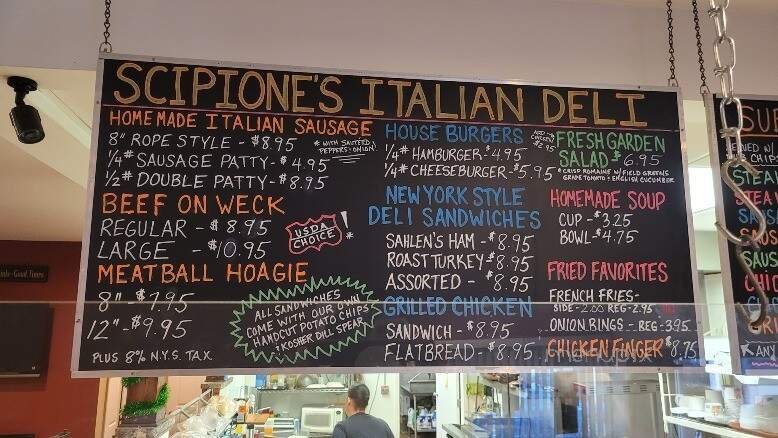 SCIPIONE'S ITALIAN DELI
HOMEMADE ITALIAN SAUSAGE
8" ROPE STYLE - $8.95
* WITH SAUTEED
PEPPERS + ONION!
1/4# SAUSAGE PATTY - $4.95
1/2# DOUBLE PATTY - $8.75
BEEF ON WECK
REGULAR - $8.95
LARGE - $10.95
USDA
CHOICE!
MEATBALL HOAGIE
8" - $7.95
12" - $9.95
PLUS 8% N.Y.S. TAX
ALL SANDWICHES
COME WITH OUR OWN
HANDCUT POTATO CHIPS
+ KOSHER DILL SPEAR
HOUSE BURGERS
1/4# HAMBURGER - $4.95
1/4# CHEESEBURGER - $5.95
NEW YORK STYLE
DELI SANDWICHES
SAHLEN'S HAM - $8.95
ROAST TURKEY - $8.95
ASSORTED - $8.95
GRILLED CHICKEN
SANDWICH - $8.95
FLATBREAD - $8.95
ADD
CHICKEN
$2.95
FRESH GARDEN
SALAD $6.95
* CRISP ROMAINE W/ FIELD GREENS
GRAPE TOMATO + ENGLISH CUCUMBER
HOMEMADE SOUP
CUP - $3.25
BOWL - $4.75
FRIED FAVORITES
FRENCH FRIES -
SIDE - 2.00 REG - 2.95
ONION RINGS - REG - 3.95
CHICKEN FINGER $8.75
SU
W/
CHIPS
STEA
STEA
SAUS
SAUS
SAUS
CHIC
* ANY
Good Times